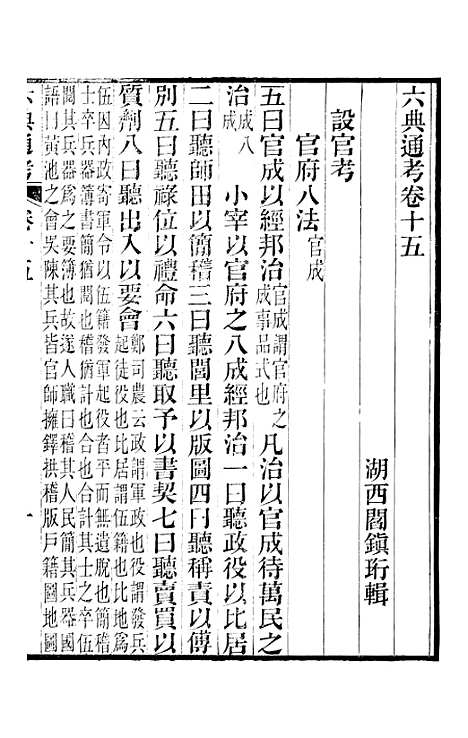 六典通考卷十五
湖西閻鎮珩輯
設官考
官府八法官成
五曰官成以經邦治官成謂官府之成事品式也凡治以官成待萬民之
治成八成　小宰以官府之八成經邦治一曰聽政役以比居
二曰聽師田以簡稽三曰聽閭里以版圖四曰聽稱責以傅
別五曰聽祿位以禮命六曰聽取予以書契七曰聽賣買以
質劑八曰聽出入以要會鄭司農云政謂軍政也役謂發兵起徒役也比居謂伍籍也比地爲
伍因內政寄軍令以伍籍發軍起役者平而無遺脫也簡稽士卒兵器薄書簡猶閱也稽猶計也合也合計其士之卒伍
閱其兵器爲之要簿也故遂人職曰稽其人民簡其兵器國語曰黃池之會吳陳其兵皆官師擁鐸拱稽版戶籍圖地圖
六典通考
卷十五
一